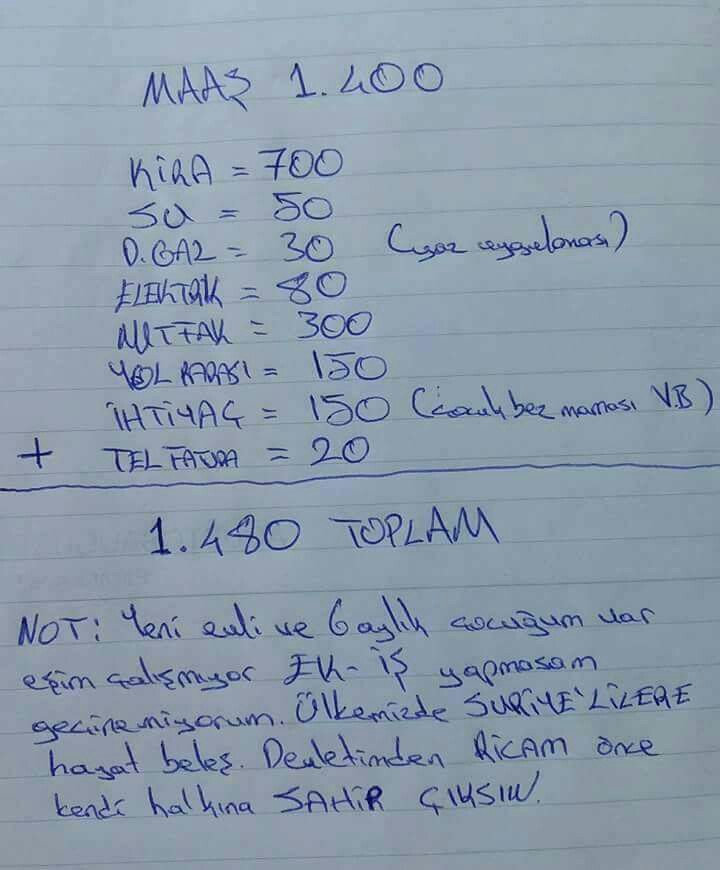 MAAŞ 1.400
KİRA = 700
SU = 50
D.GAZ = 30 (yaz uygulaması)
ELEKTRİK = 80
MUTFAK = 300
YOL PARASI = 150
İHTİYAÇ = 150 (çocuk bez maması V.B)
+ TEL FATURA = 20
1.480 TOPLAM
NOT: Yeni evli ve 6 aylık çocuğum var
eşim çalışmıyor EK-İŞ yapmasam
geçinemiyorum. Ülkemizde SURİYE'LİLERE
hayat beleş. Devletimden RİCAM önce
kendi halkına SAHİP ÇIKSIN.